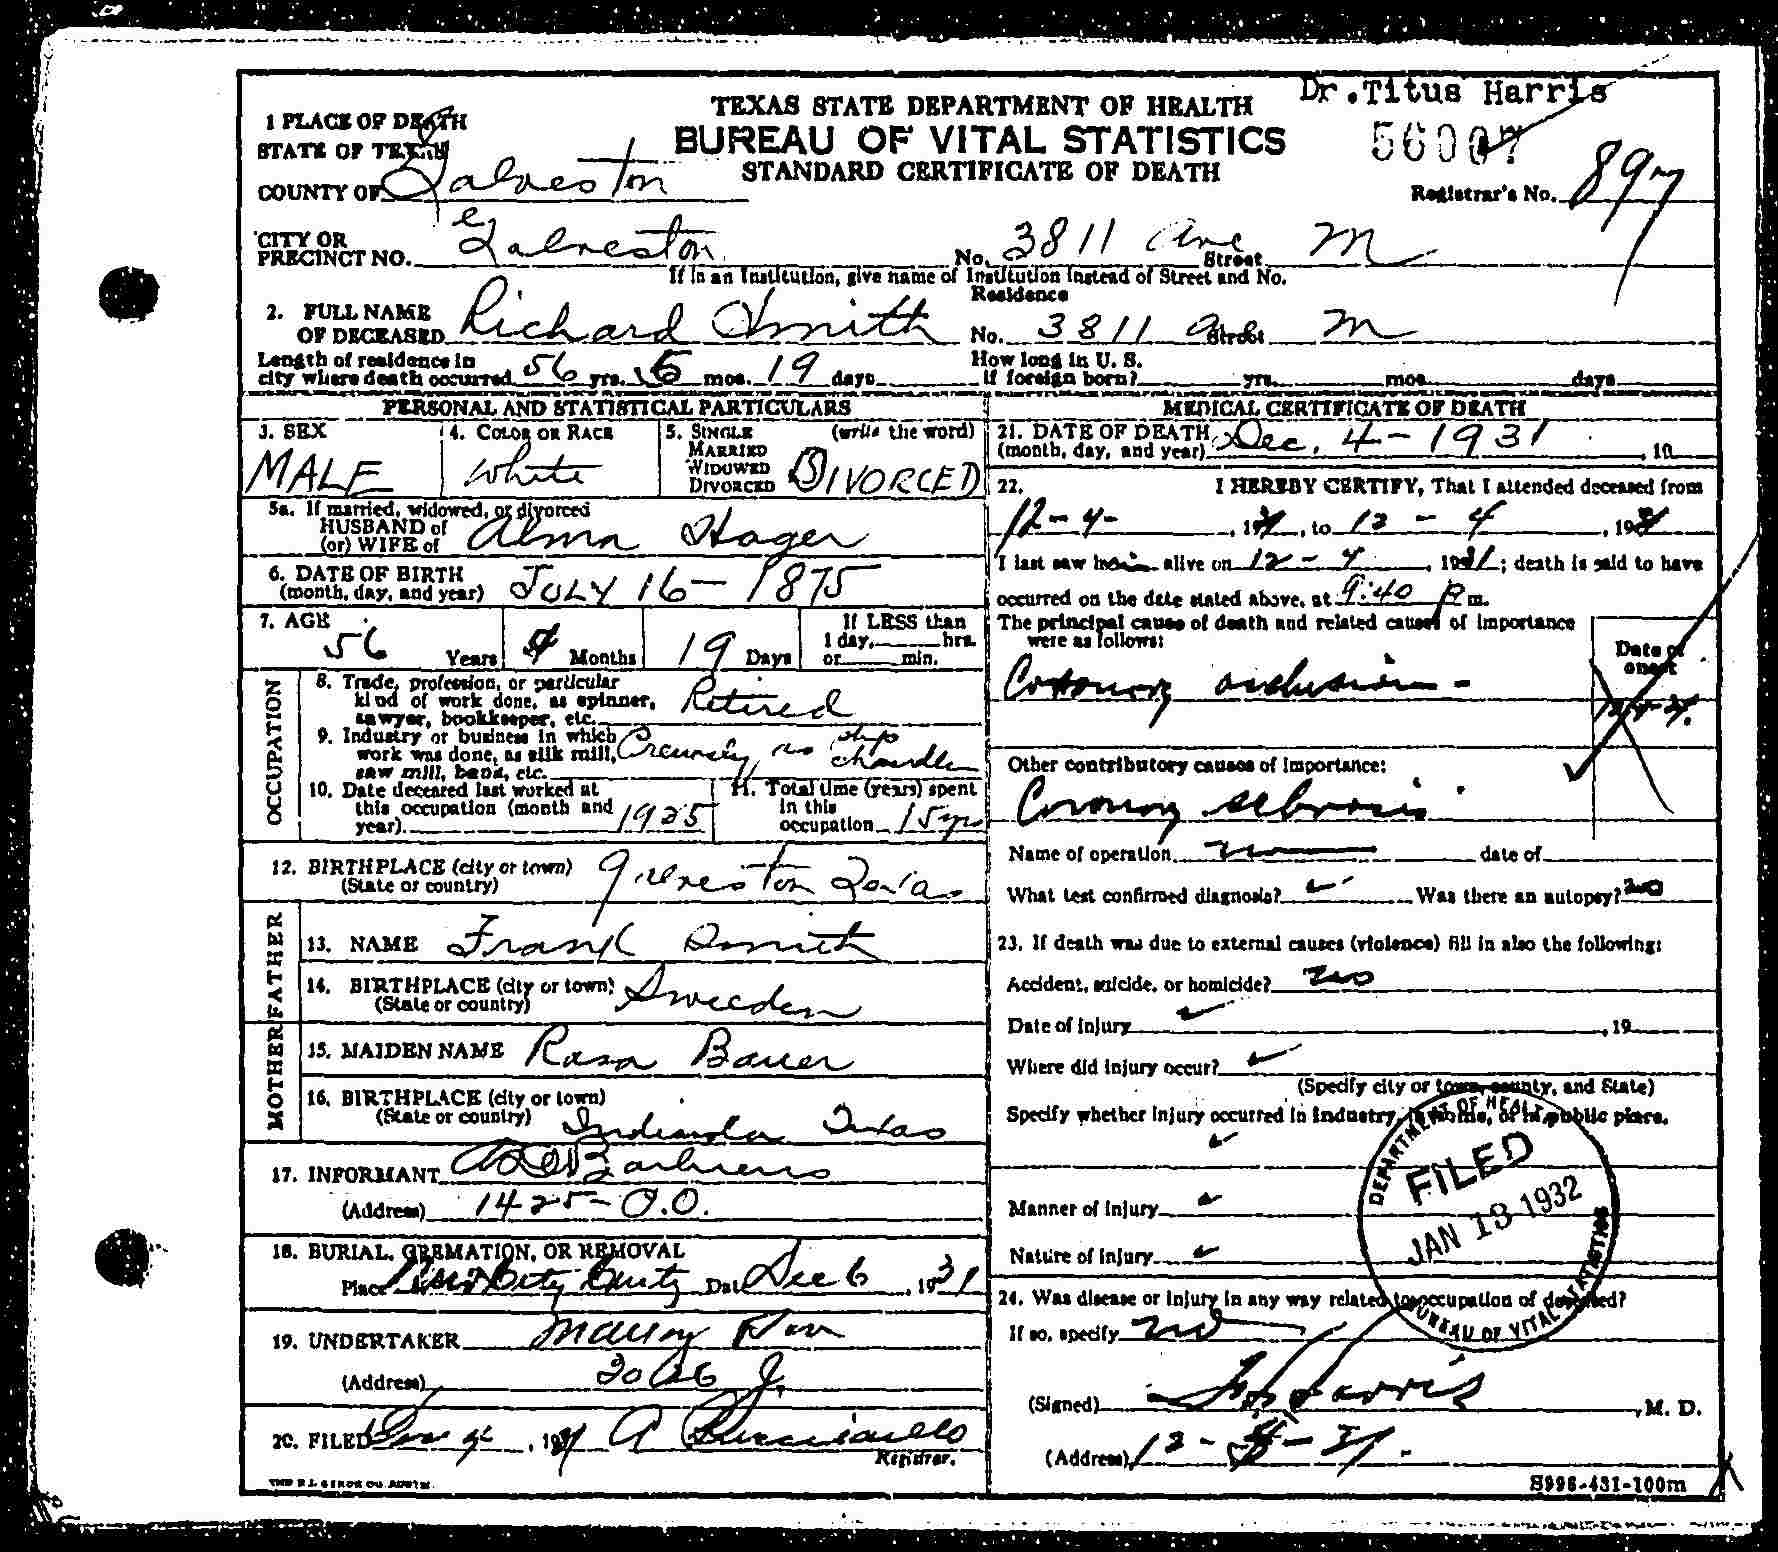 Dr. Titus Harris
TEXAS STATE DEPARTMENT OF HEALTH
BUREAU OF VITAL STATISTICS
STANDARD CERTIFICATE OF DEATH
56007
Registrar's No. 897
1 PLACE OF DEATH
STATE OF TEXAS
COUNTY OF Galveston
CITY OR
PRECINCT NO. Galveston No. 3811 Ave Street M
If in an Institution, give name of Institution instead of Street and No.
Residence
2. FULL NAME
OF DECEASED Richard Smith No. 3811 Ave Street M
Length of residence in
city where death occurred 56 yrs. 5 mos. 19 days
How long in U. S.
if foreign born? yrs. mos. days
PERSONAL AND STATISTICAL PARTICULARS
3. SEX
MALE
4. COLOR OR RACE
White
5. SINGLE (write the word)
MARRIED
WIDOWED
DIVORCED DIVORCED
5a. If married, widowed, or divorced
HUSBAND of
(or) WIFE of Alma Hager
6. DATE OF BIRTH
(month, day, and year) JULY 16 - 1875
7. AGE
56 Years 4 Months 19 Days
If LESS than
1 day, hrs.
or min.
OCCUPATION
8. Trade, profession, or particular
kind of work done, as spinner,
sawyer, bookkeeper, etc. Retired
9. Industry or business in which
work was done, as silk mill,
saw mill, bank, etc. ship
10. Date deceased last worked at
this occupation (month and
year) 1925
11. Total time (years) spent
in this
occupation 15 yrs
12. BIRTHPLACE (city or town)
(State or country) Galveston Texas
FATHER
13. NAME Frank Smith
14. BIRTHPLACE (city or town)
(State or country) Sweeden
MOTHER
15. MAIDEN NAME Rosa Bauer
16. BIRTHPLACE (city or town)
(State or country) Indianola Texas
17. INFORMANT
(Address) 1425 - O.O.
18. BURIAL, CREMATION, OR REMOVAL
Place City Date Dec 6, 1931
19. UNDERTAKER
(Address)
20. FILED , 1931 A
Registrar.
MEDICAL CERTIFICATE OF DEATH
21. DATE OF DEATH
(month, day, and year) Dec. 4 - 1931 , 19
22. I HEREBY CERTIFY, That I attended deceased from
12 - 4 - , 1931, to 12 - 4 , 1931
I last saw him alive on 12 - 4 , 1931; death is said to have
occurred on the date stated above, at 9:40 P m.
The principal cause of death and related causes of importance
were as follows:
Date of
onset
Coronary occlusion -
Other contributory causes of importance:
Coronary sclerosis
Name of operation no date of
What test confirmed diagnosis? Was there an autopsy? no
23. If death was due to external causes (violence) fill in also the following:
Accident, suicide, or homicide? no
Date of injury , 19
Where did injury occur?
(Specify city or town, county, and State)
Specify whether injury occurred in industry, in home, or in public place.
Manner of injury
Nature of injury
24. Was disease or injury in any way related to occupation of deceased?
If so, specify no
(Signed) Harris , M. D.
(Address)
DEPARTMENT OF HEALTH
FILED
JAN 13 1932
BUREAU OF VITAL STATISTICS
S996-431-100m